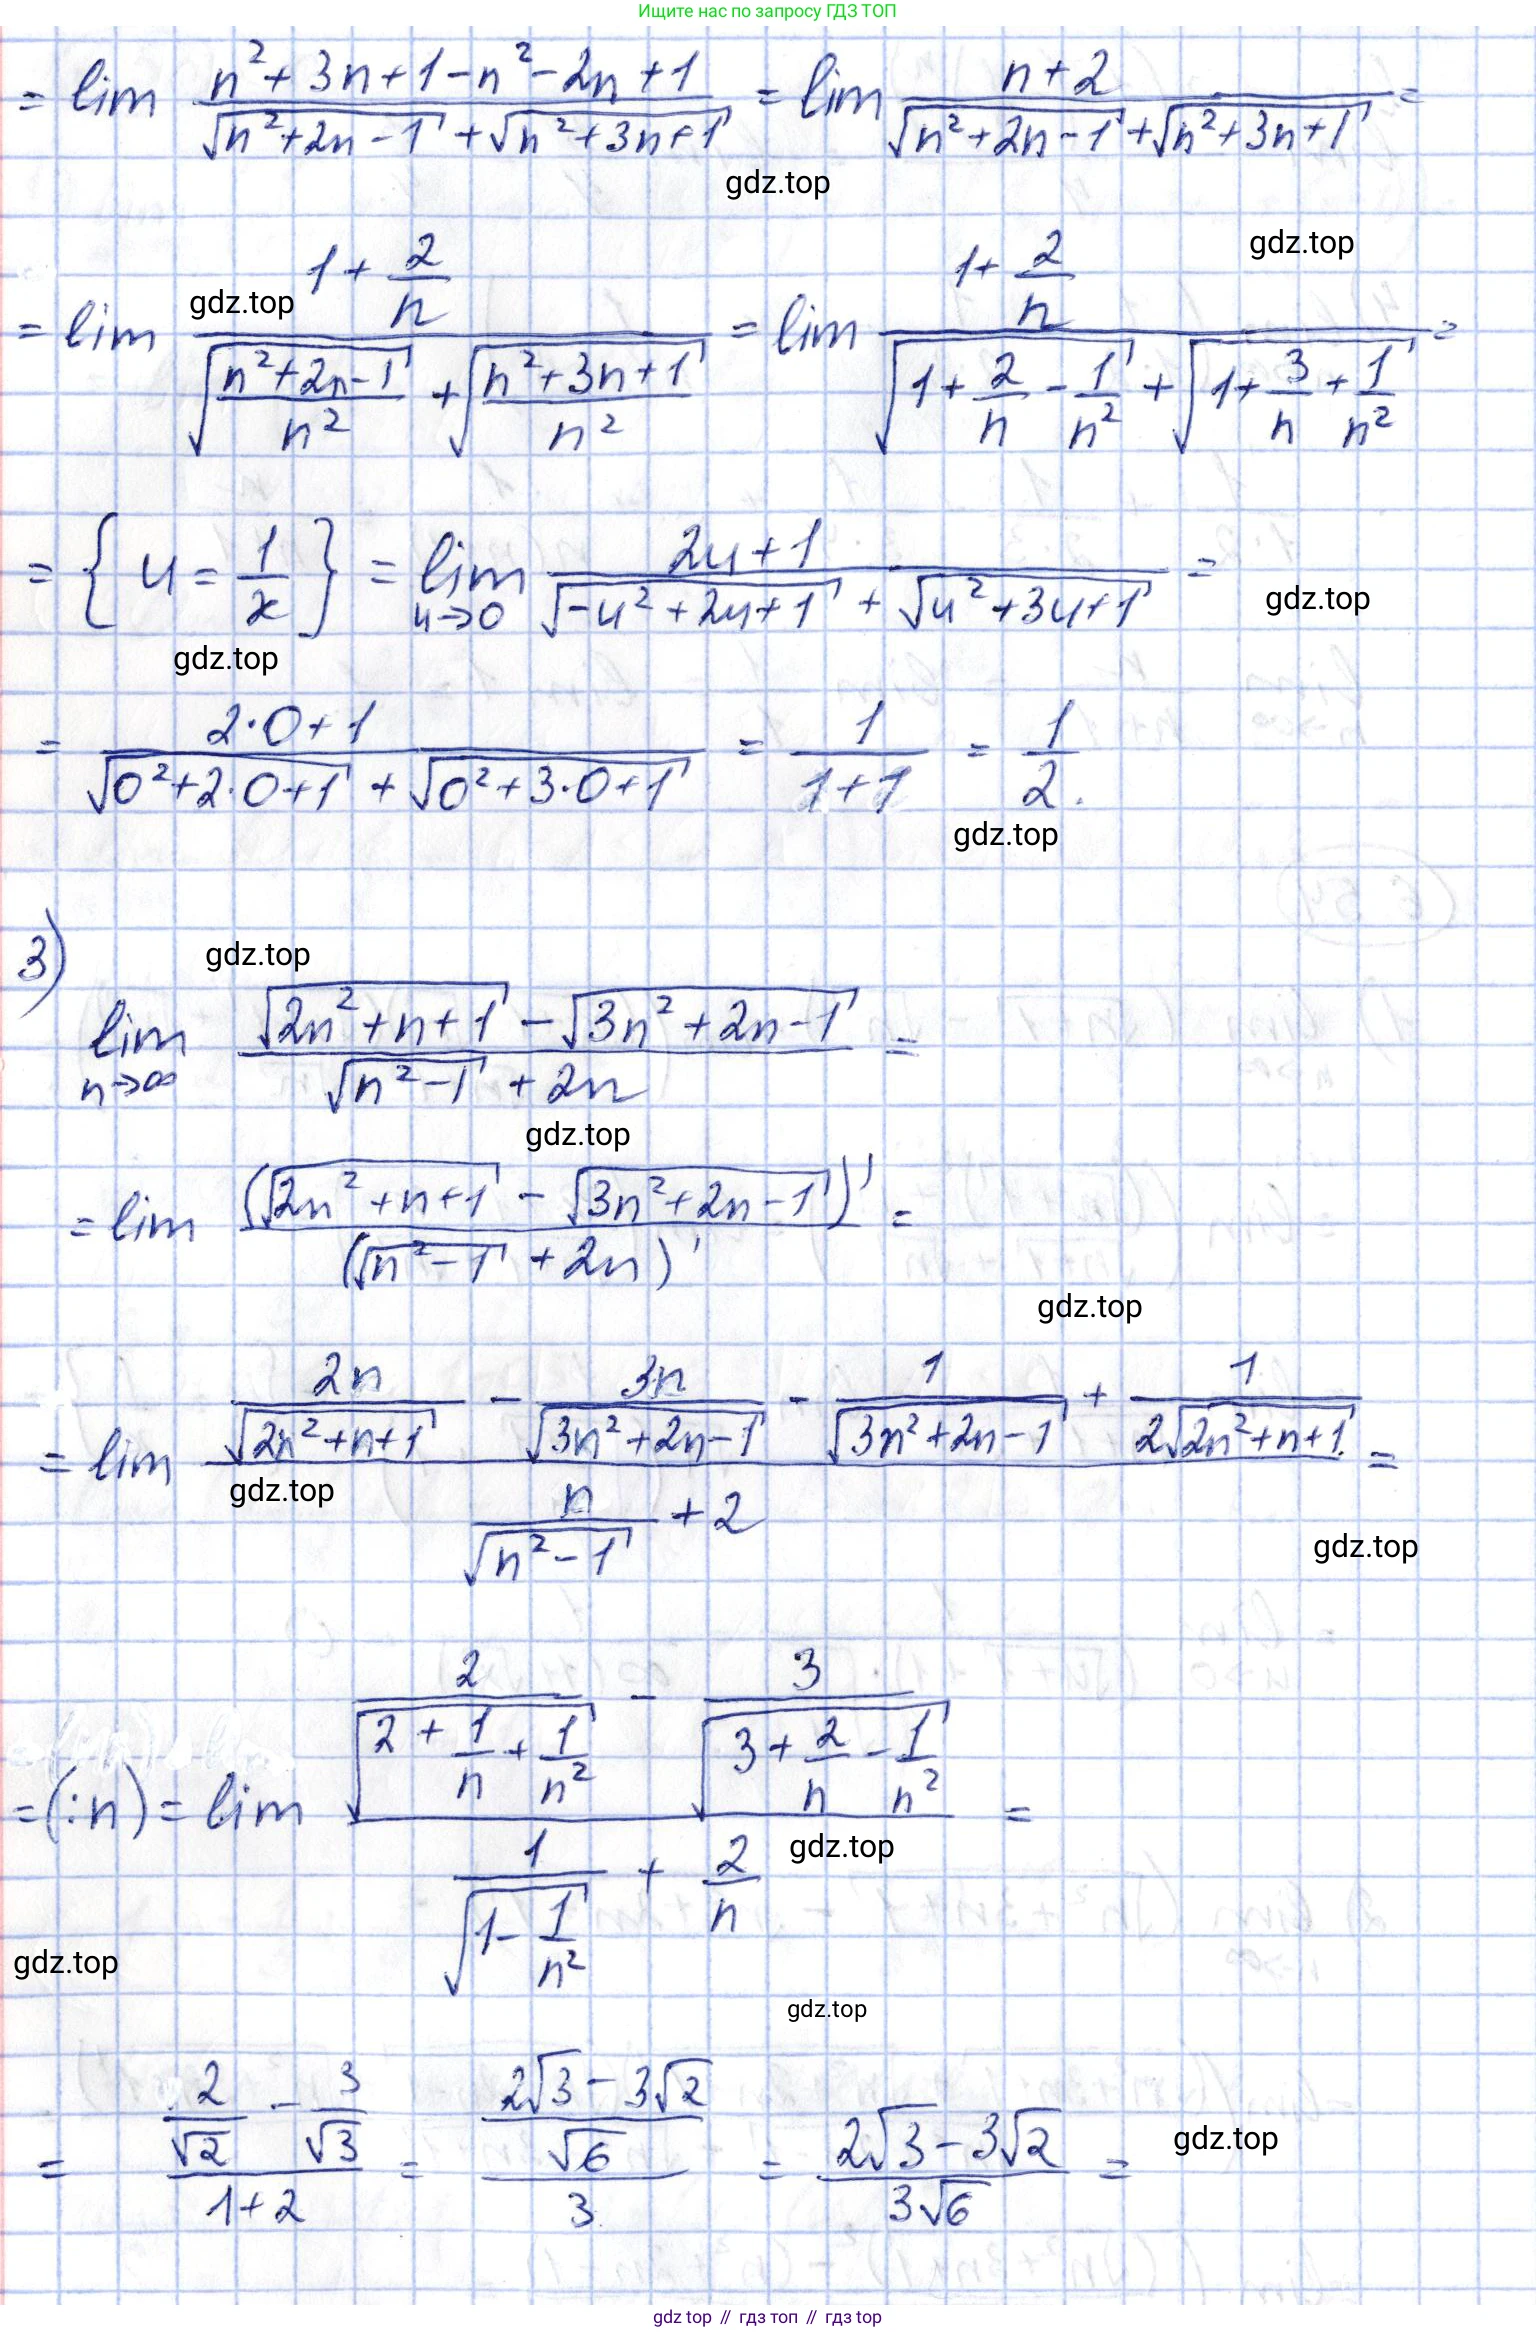 Ищите нас по запросу ГДЗ ТОП
= lim (n² + 3n + 1 - n² - 2n + 1)/(√(n² + 2n - 1) + √(n² + 3n + 1)) = lim (n + 2)/(√(n² + 2n - 1) + √(n² + 3n + 1)) =
gdz.top
gdz.top
gdz.top
= lim (1 + 2/n)/(√((n² + 2n - 1)/n²) + √((n² + 3n + 1)/n²)) = lim (1 + 2/n)/(√(1 + 2/n - 1/n²) + √(1 + 3/n + 1/n²)) =
= {u = 1/x} = lim u→0 (2u + 1)/(√(-u² + 2u + 1) + √(u² + 3u + 1)) =
gdz.top
gdz.top
= (2·0 + 1)/(√(0² + 2·0 + 1) + √(0² + 3·0 + 1)) = 1/(1 + 1) = 1/2.
gdz.top
3)
gdz.top
lim n→∞ (√(2n² + n + 1) - √(3n² + 2n - 1))/(√(n² - 1) + 2n) =
gdz.top
= lim (√(2n² + n + 1) - √(3n² + 2n - 1))'/(√(n² - 1) + 2n)' =
gdz.top
= lim (2n/√(2n² + n + 1) - 3n/√(3n² + 2n - 1) - 1/√(3n² + 2n - 1) + 1/(2√(2n² + n + 1)))/(n/√(n² - 1) + 2) =
gdz.top
gdz.top
= (:n) = lim (2/√(2 + 1/n + 1/n²) - 3/√(3 + 2/n - 1/n²))/(1/√(1 - 1/n²) + 2/n) =
gdz.top
gdz.top
gdz.top
= (2/√2 - 3/√3)/(1 + 2) = ((2√3 - 3√2)/√6)/3 = (2√3 - 3√2)/(3√6) =
gdz.top
gdz top // гдз топ // гдз top